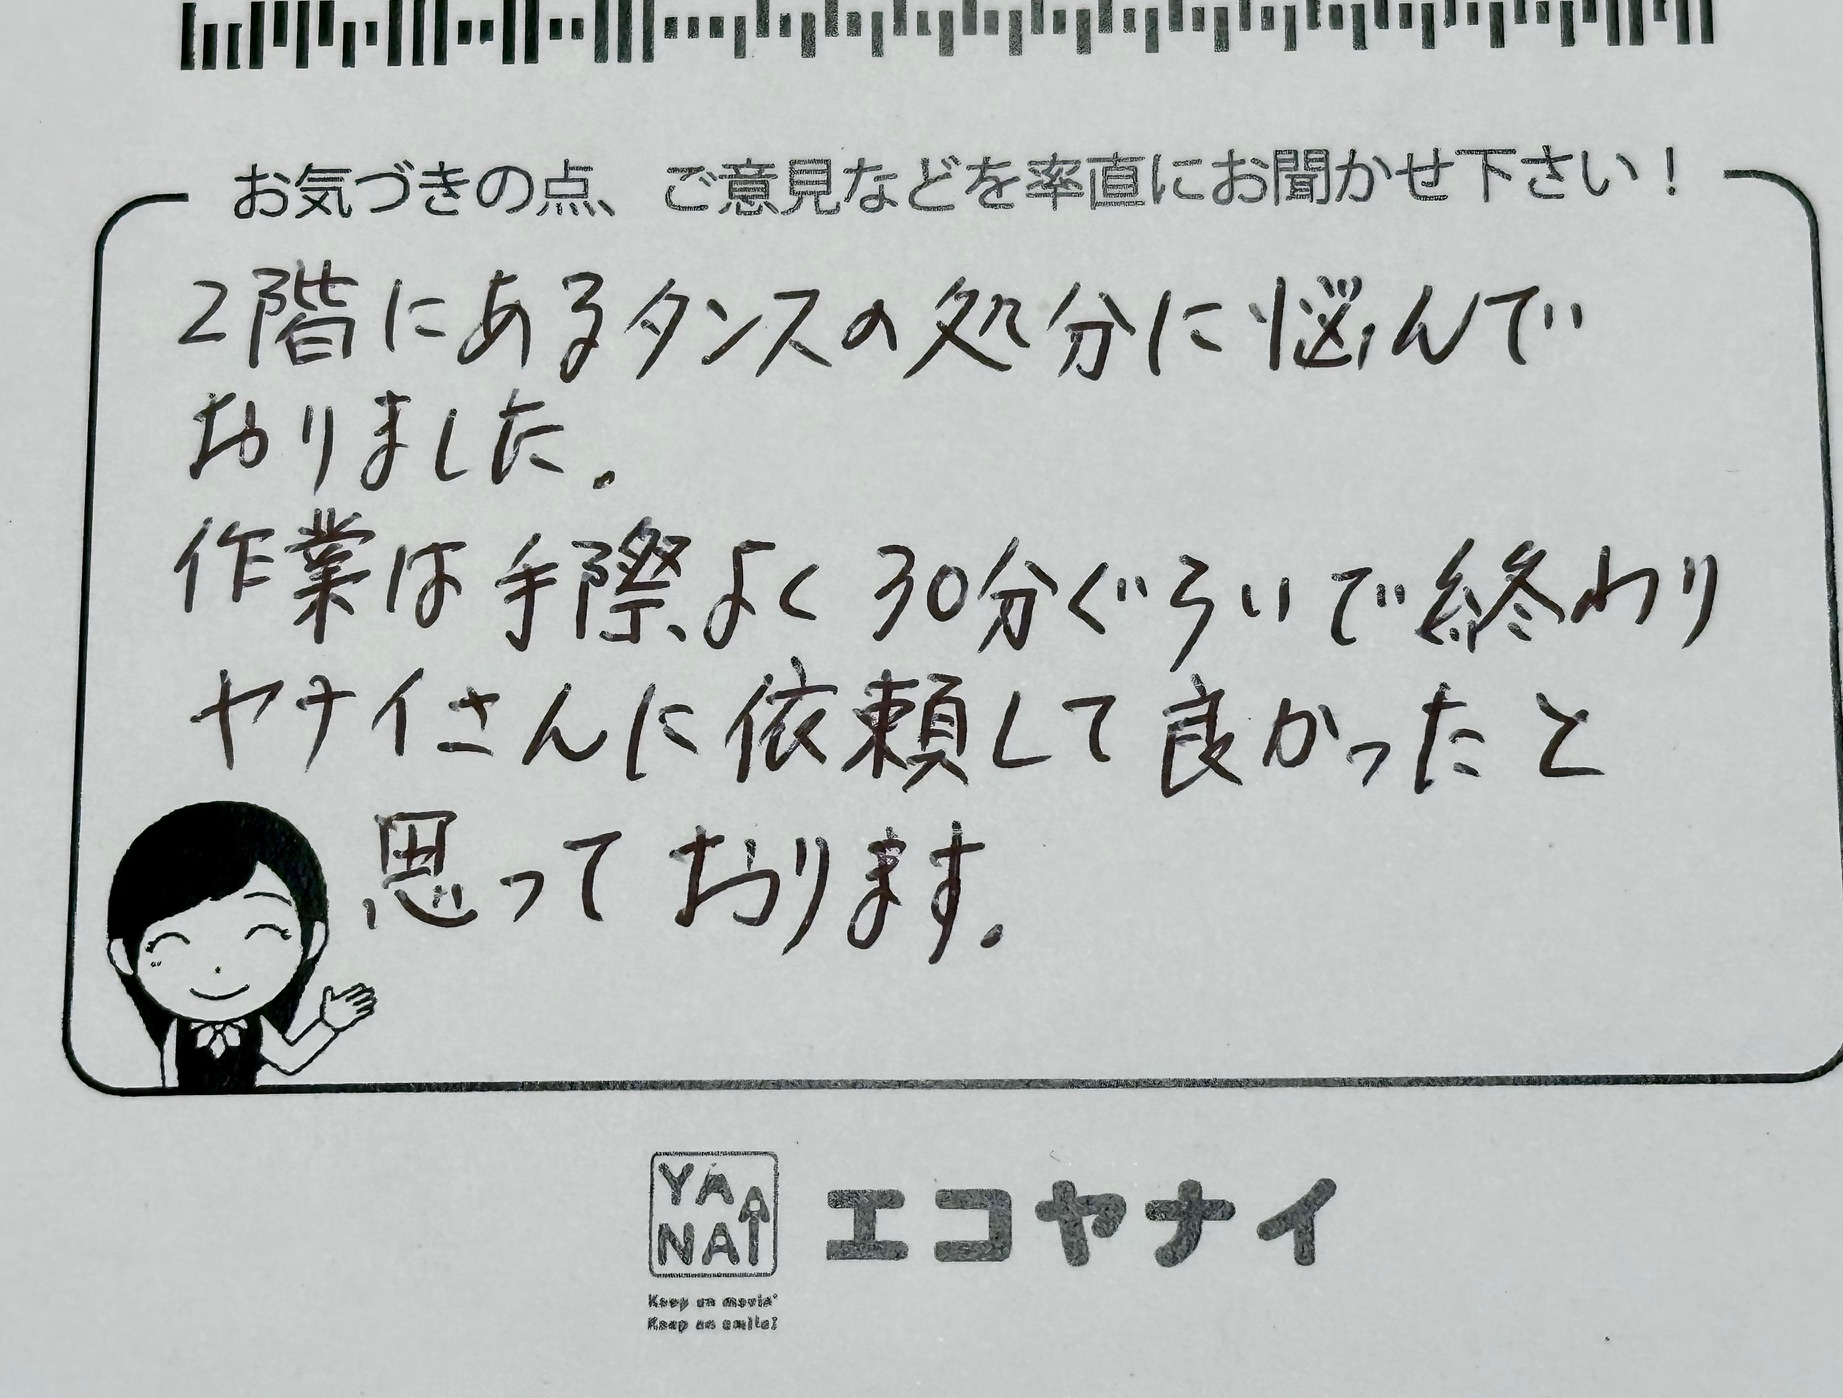 お気づきの点、ご意見などを率直にお聞かせ下さい！
2階にあるタンスの処分に悩んで
おりました.
作業は手際よく30分ぐらいで終わり
ヤナイさんに依頼して良かったと
思っております.
YA
NAI
エコヤナイ
Keep on movin'
Keep on smile!